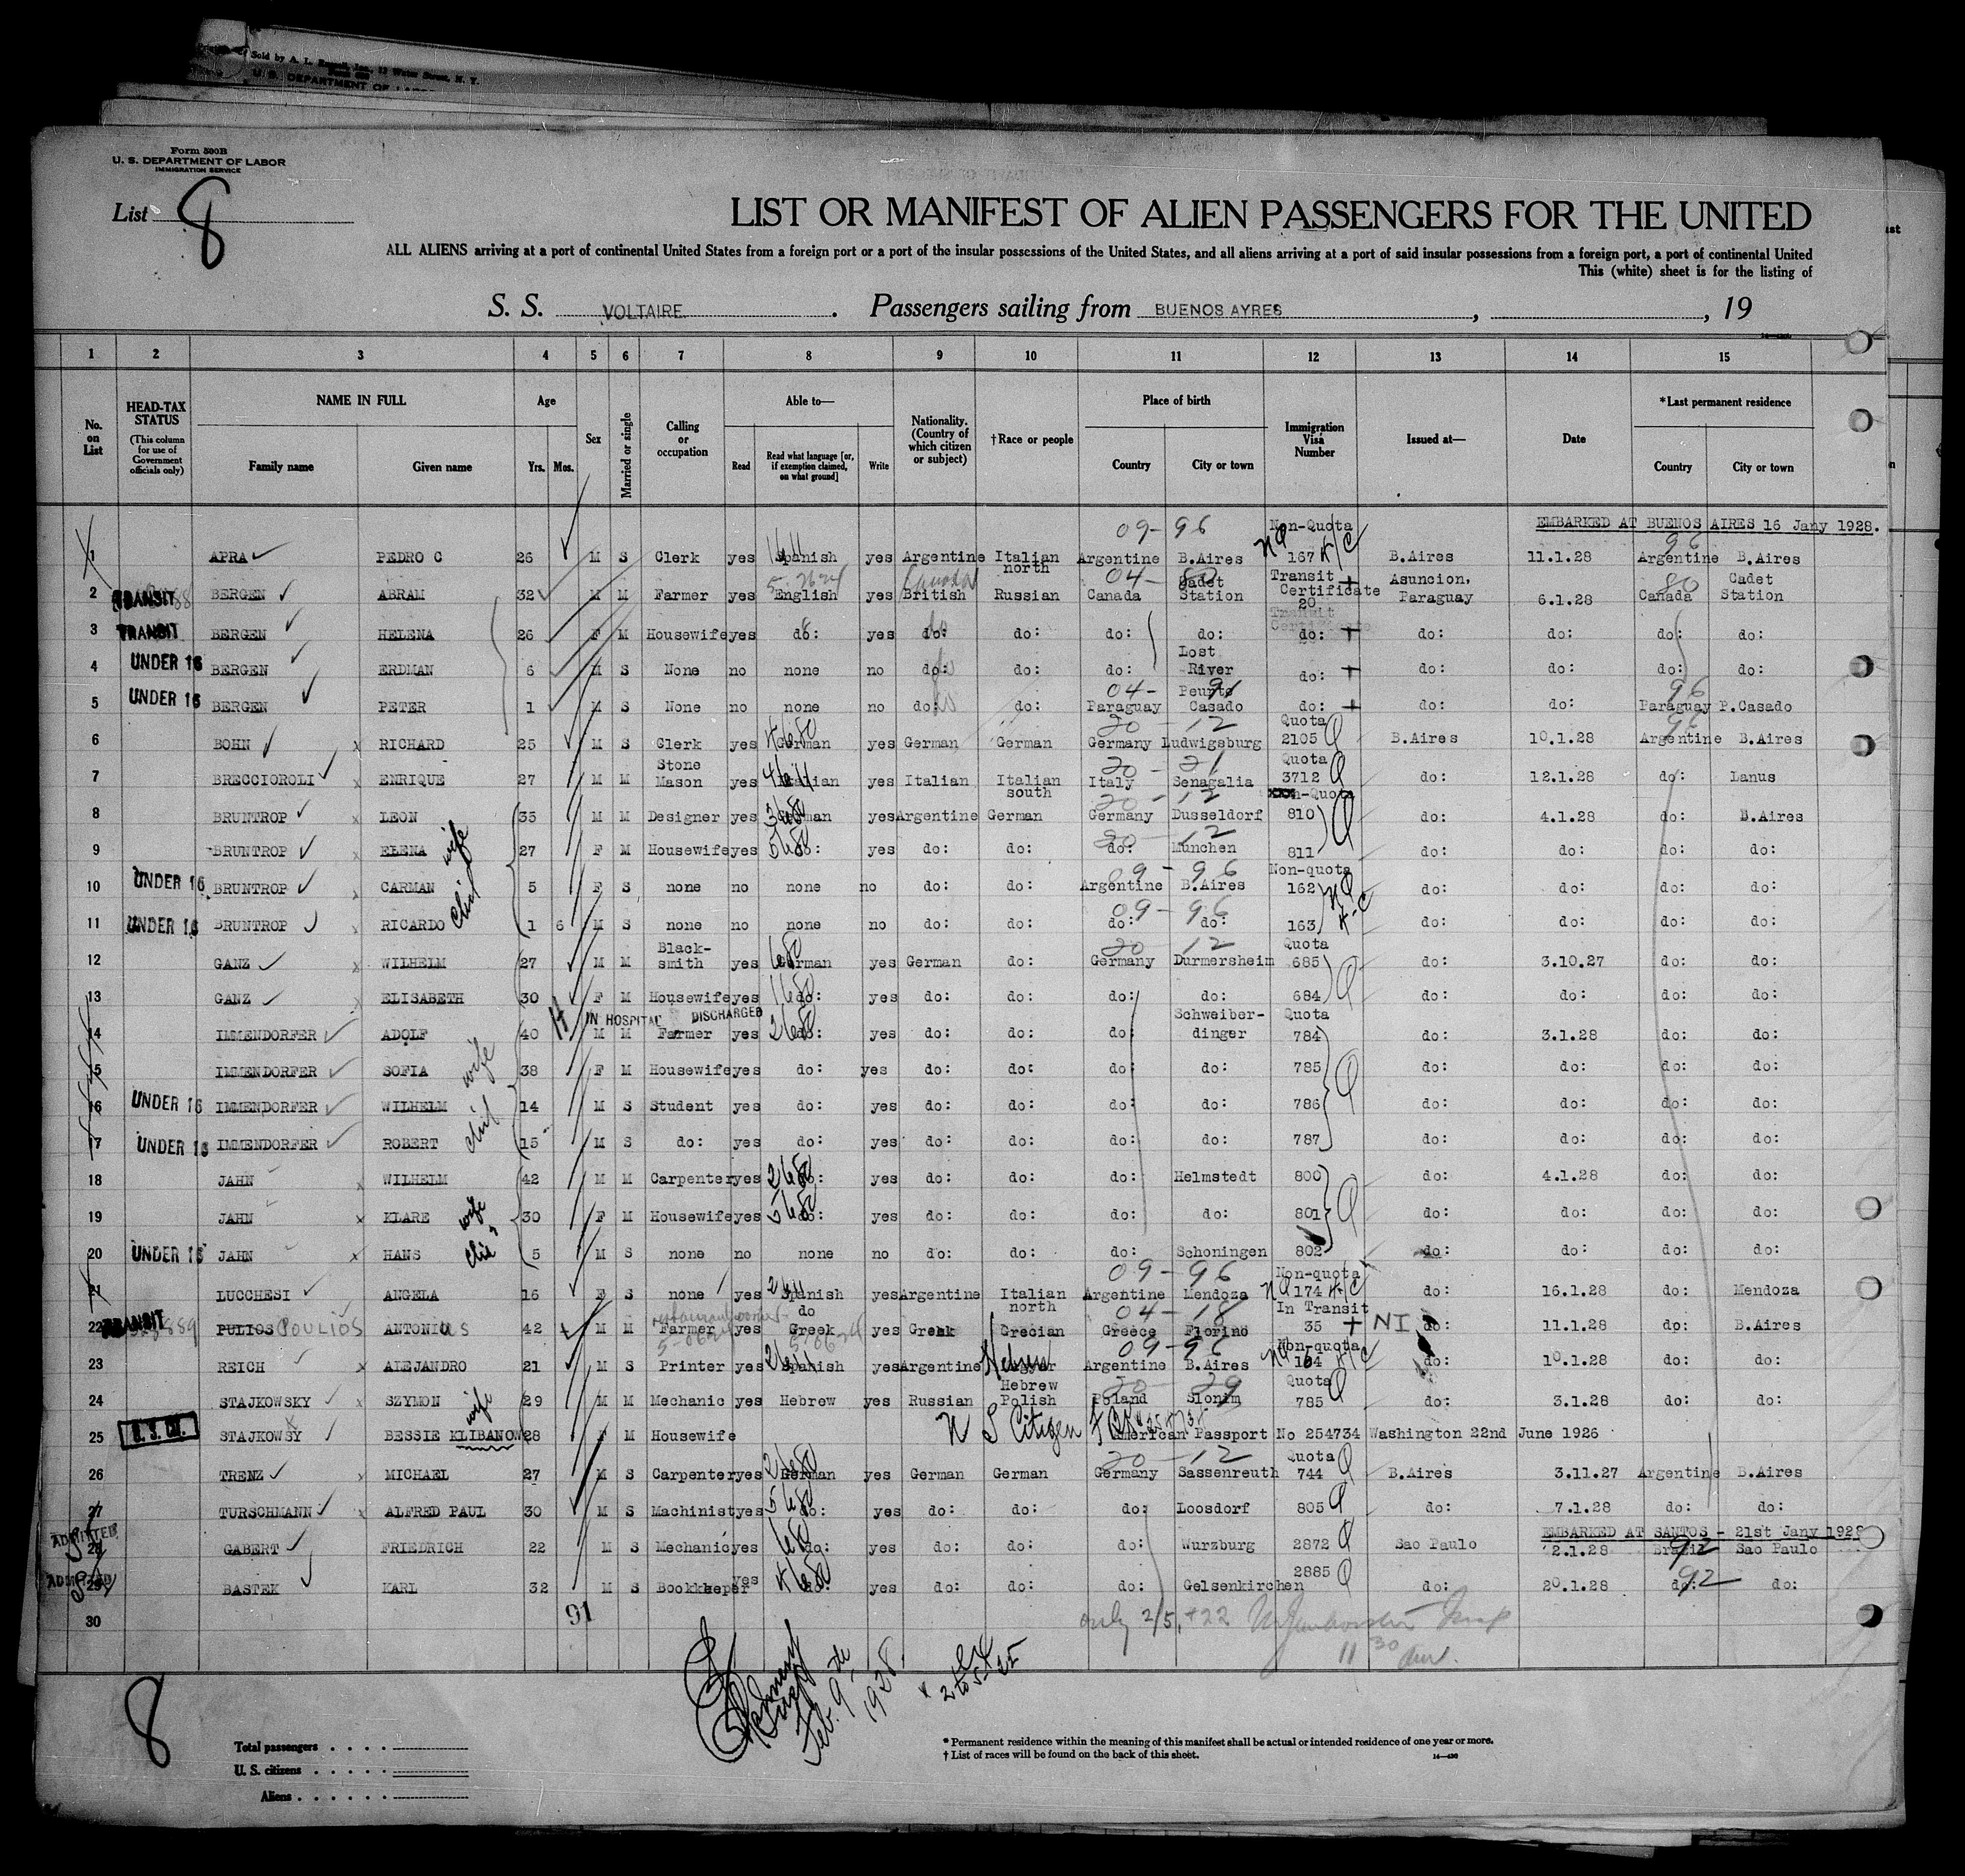 Sold by A. L. Russell, Inc., 12 Water Street, N. Y.
U. S. DEPARTMENT OF LABOR
Form 500B
U. S. DEPARTMENT OF LABOR
IMMIGRATION SERVICE
List 8
LIST OR MANIFEST OF ALIEN PASSENGERS FOR THE UNITED
ALL ALIENS arriving at a port of continental United States from a foreign port or a port of the insular possessions of the United States, and all aliens arriving at a port of said insular possessions from a foreign port, a port of continental United
This (white) sheet is for the listing of
S. S. VOLTAIRE. Passengers sailing from BUENOS AYRES, , 19
1 2 3 4 5 6 7 8 9 10 11 12 13 14 15
No. on List
HEAD-TAX STATUS (This column for use of Government officials only)
NAME IN FULL Family name Given name
Age Yrs. Mos.
Sex
Married or single
Calling or occupation
Able to— Read Read what language [or, if exemption claimed, on what ground] Write
Nationality. (Country of which citizen or subject)
†Race or people
Place of birth Country City or town
Immigration Visa Number
Issued at—
Date
*Last permanent residence Country City or town
09-96 Non-Quota EMBARKED AT BUENOS AIRES 16 Jany 1928.
1 APRA PEDRO C 26 M S Clerk yes Spanish yes Argentine Italian north Argentine B.Aires NQ 167 B.Aires 11.1.28 Argentine B.Aires
2 TRANSIT BERGEN ABRAM 32 M M Farmer yes English yes Canada British Russian 04-80 Canada Cadet Station Transit Certificate 20 Asuncion, Paraguay 6.1.28 80 Canada Cadet Station
3 TRANSIT BERGEN HELENA 26 F M Housewife yes do: yes do: do: do: do: do: do: do: do: do:
4 UNDER 16 BERGEN ERDMAN 6 M S None no none no do: do: do: Lost River do: do: do: do: do:
5 UNDER 16 BERGEN PETER 1 M S None no none no do: do: 04-96 Paraguay Peunto Casado do: do: do: 96 Paraguay P.Casado
6 BOHN x RICHARD 25 M S Clerk yes German yes German German 20-12 Germany Ludwigsburg Quota 2105 Q B.Aires 10.1.28 96 Argentine B.Aires
7 BRECCIOROLI x ENRIQUE 27 M M Stone Mason yes Italian yes Italian Italian south 20-21 Italy Senagalia Quota 3712 Q do: 12.1.28 do: Lanus
8 BRUNTROP x LEON 35 M M Designer yes German yes Argentine German 20-12 Germany Dusseldorf xxxn-Quota 810 Q do: 4.1.28 do: B.Aires
9 BRUNTROP x ELENA wife 27 F M Housewife yes do: yes do: do: 20-12 do: Munchen 811 do: do: do: do:
10 UNDER 16 BRUNTROP x CARMAN 5 F S none no none no do: do: 09-96 Argentine B.Aires Non-quota 162 NQ do: do: do: do:
11 UNDER 16 BRUNTROP x RICARDO 1 6 M S none no none no do: do: 09-96 do: do: 163 do: do: do: do:
12 GANZ x WILHELM 27 M M Black-smith yes German yes German do: 20-12 Germany Durmersheim Quota 685 Q do: 3.10.27 do: do:
13 GANZ x ELISABETH 30 F M Housewife yes do: yes do: do: do: do: 684 do: do: do: do:
IN HOSPITAL DISCHARGED
14 IMMENDORFER ADOLF 40 M M Farmer yes do: yes do: do: do: Schweiber-dinger Quota 784 do: 3.1.28 do: do:
15 IMMENDORFER SOFIA wife 38 F M Housewife yes do: yes do: do: do: do: 785 Q do: do: do: do:
16 UNDER 16 IMMENDORFER WILHELM 14 M S Student yes do: yes do: do: do: do: 786 do: do: do: do:
17 UNDER 16 IMMENDORFER ROBERT 15 M S do: yes do: yes do: do: do: do: 787 do: do: do: do:
18 JAHN x WILHELM 42 M M Carpenter yes do: yes do: do: do: Helmstedt 800 do: 4.1.28 do: do:
19 JAHN x KLARE wife 30 F M Housewife yes do: yes do: do: do: do: 801 Q do: do: do: do:
20 UNDER 16 JAHN x HANS 5 M S none no none no do: do: do: Schoningen 802 do: do: do: do:
21 LUCCHESI ANGELA 16 F S none yes Spanish yes Argentine Italian north 09-96 Argentine Mendoza Non-quota NQ 174 do: 16.1.28 do: Mendoza
22 TRANSIT PULIOS POULIOS ANTONIUS 42 M M Farmer yes do Greek yes Greek Grecian 04-18 Greece Florino In Transit 35 + NI do: 11.1.28 do: B.Aires
23 REICH x ALEJANDRO 21 M S Printer yes Spanish yes Argentine Hebrew 09-96 Argentine B.Aires Non-quota do: 10.1.28 do: do:
24 STAJKOWSKY x SZYMON 29 M M Mechanic yes Hebrew yes Russian Hebrew Polish 20-29 Poland Slonim Quota 785 Q do: 3.1.28 do: do:
25 U. S. CIT. STAJKOWSY BESSIE KLIBANOW wife 28 F M Housewife U S Citizen American Passport No 254734 Washington 22nd June 1926
26 TRENZ x MICHAEL 27 M S Carpenter yes German yes German German 20-12 Germany Sassenreuth Quota 744 Q B.Aires 3.11.27 Argentine B.Aires
27 TURSCHMANN ALFRED PAUL 30 M S Machinist yes do: yes do: do: do: Loosdorf 805 Q do: 7.1.28 do: do:
EMBARKED AT SANTOS - 21st Jany 1928
28 ADMITTED GABERT FRIEDRICH 22 M S Mechanic yes do: yes do: do: do: Wurzburg 2872 Q Sao Paulo 2.1.28 Brazil 92 Sao Paulo
29 ADMITTED BASTEK KARL 32 M S Bookkeeper yes do: yes do: do: do: Gelsenkirchen 2885 Q do: 20.1.28 do: 92 do:
30 91 only 2/5, +22
11 30 am.
Feb. 9th 1928.
8
Total passengers . . . .
U. S. citizens . . . . .
Aliens . . . . . .
* Permanent residence within the meaning of this manifest shall be actual or intended residence of one year or more.
† List of races will be found on the back of this sheet.